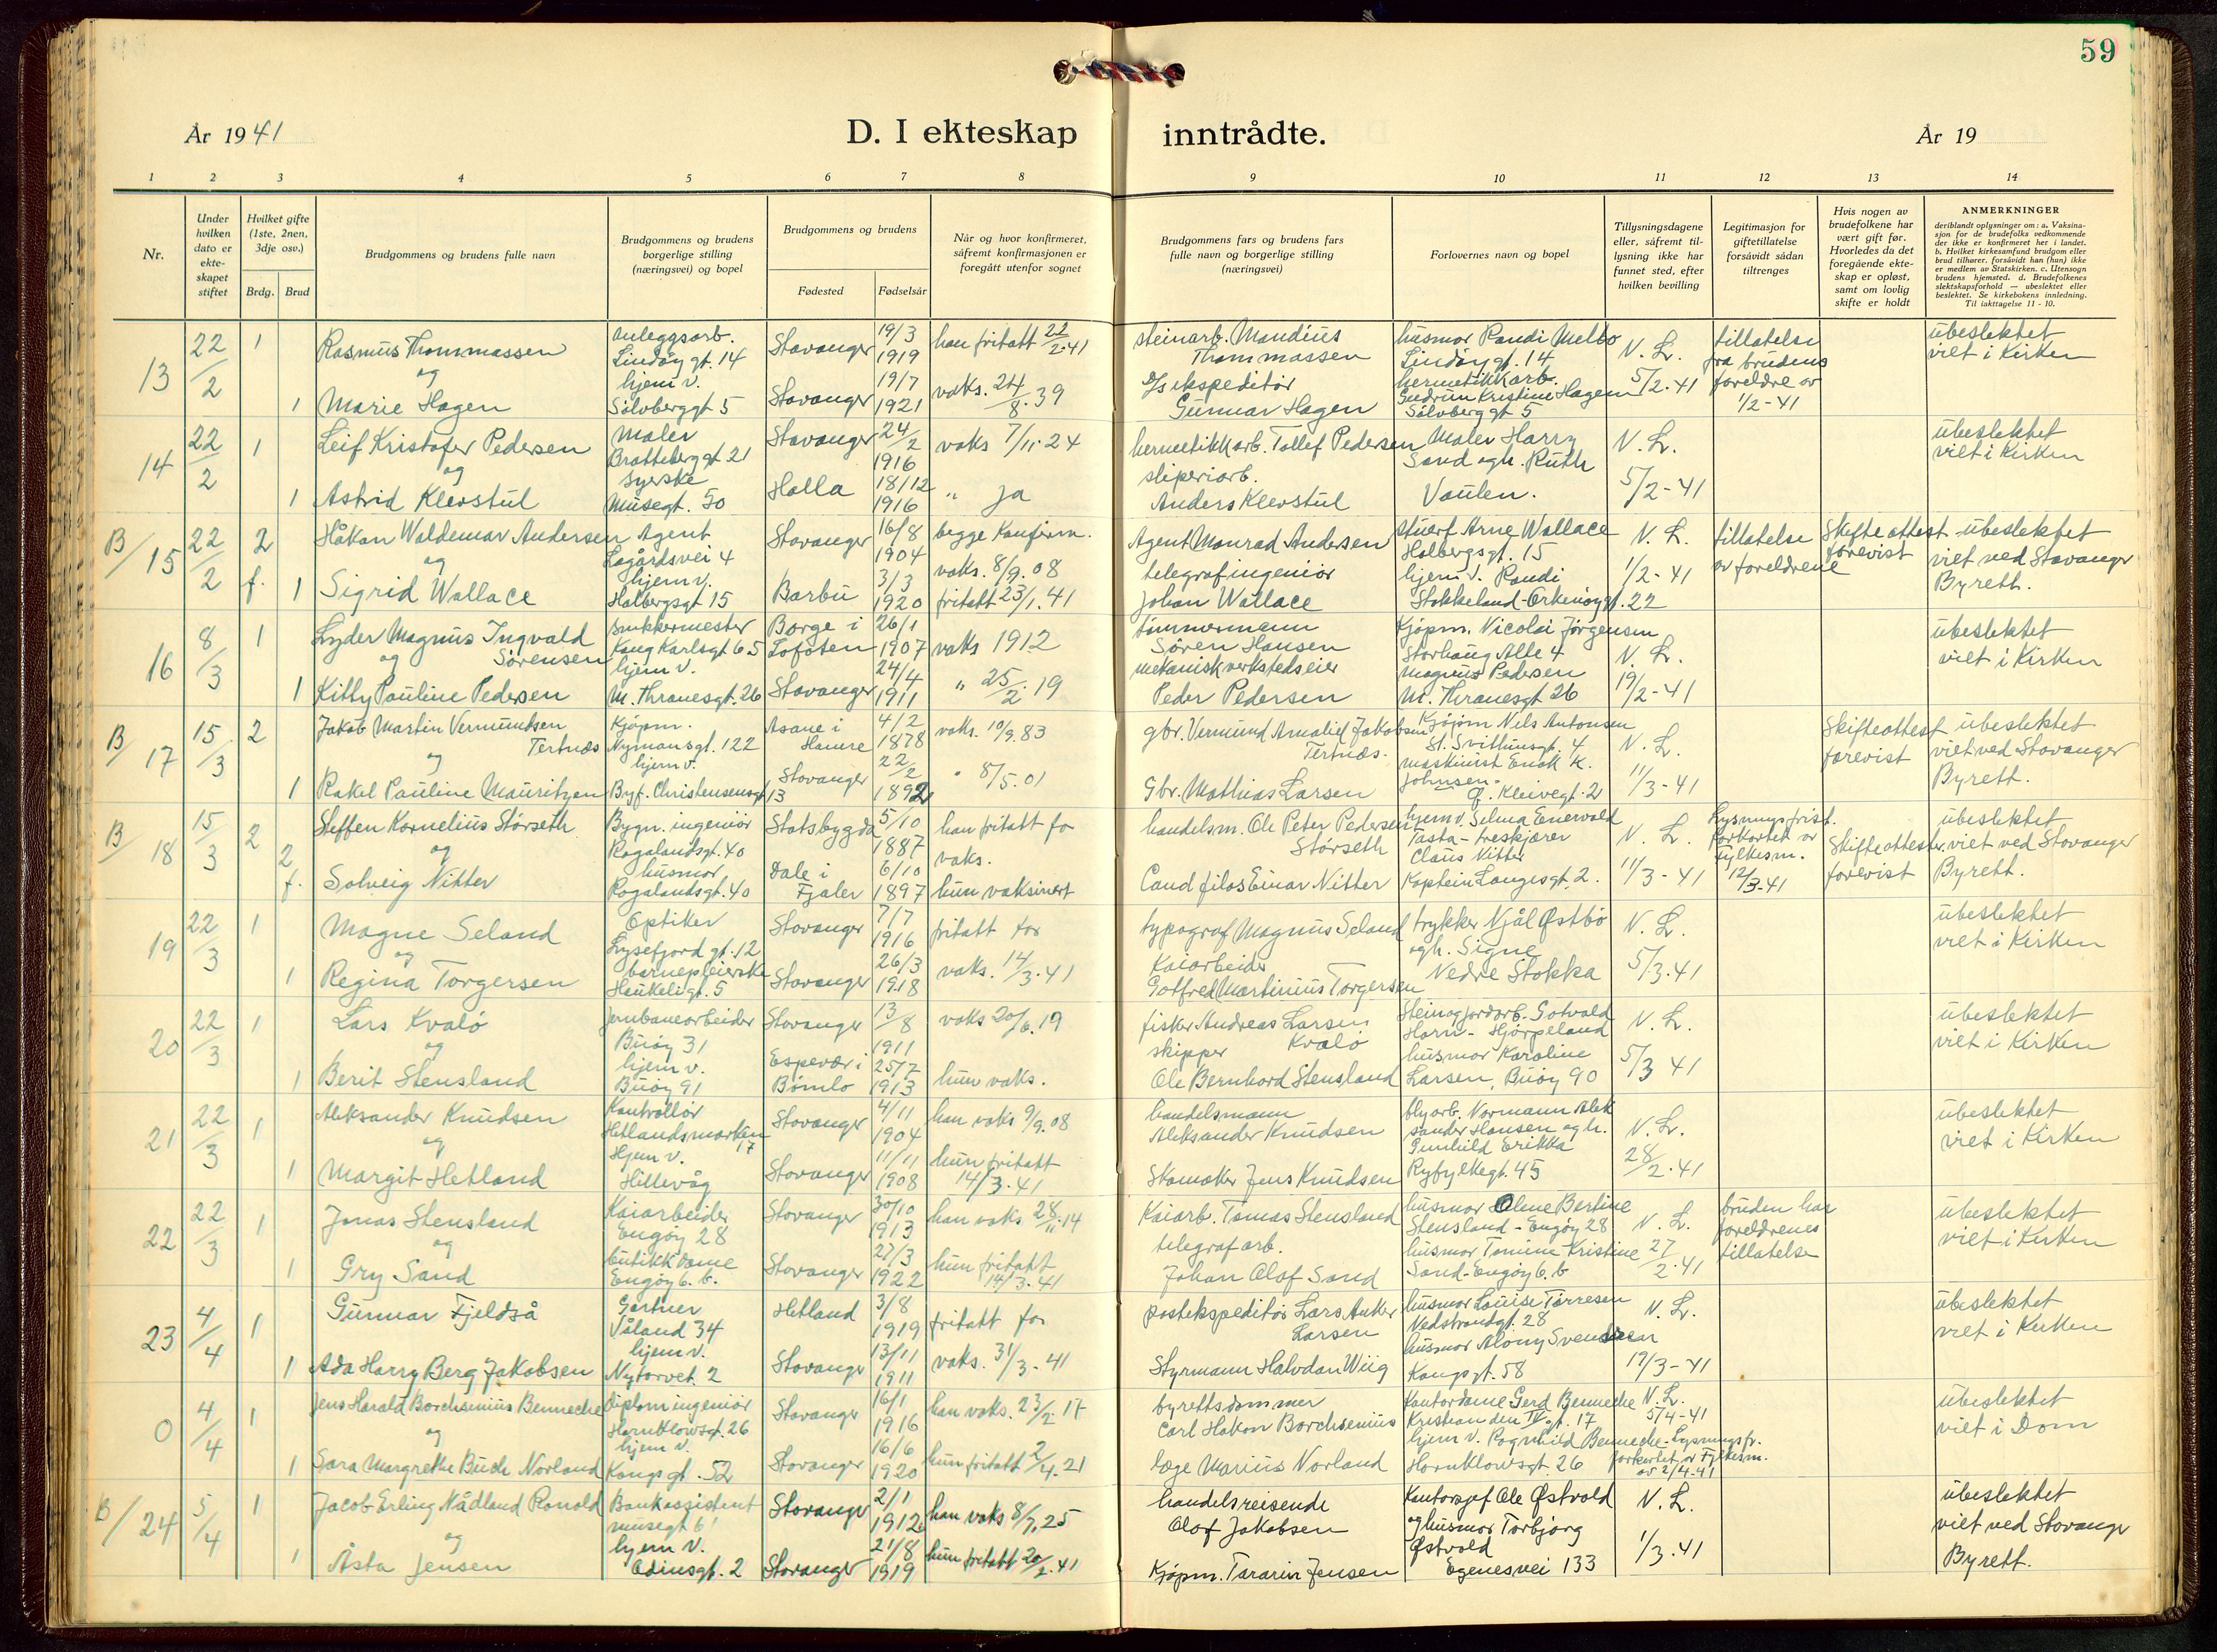 59
År 1941
D. I ekteskap inntrådte.
År 19
1 2 3 4 5 6 7 8 9 10 11 12 13 14
Nr.
Under hvilken dato er ekteskapet stiftet
Hvilket gifte (1ste, 2nen, 3dje osv.)
Brdg. Brud
Brudgommens og brudens fulle navn
Brudgommens og brudens borgerlige stilling (næringsvei) og bopel
Brudgommens og brudens
Fødested Fødselsår
Når og hvor konfirmeret, såfremt konfirmasjonen er foregått utenfor sognet
Brudgommens fars og brudens fars fulle navn og borgerlige stilling (næringsvei)
Forlovernes navn og bopel
Tillysningsdagene eller, såfremt tillysning ikke har funnet sted, efter hvilken bevilling
Legitimasjon for giftetillatelse forsåvidt sådan tiltrenges
Hvis nogen av brudefolkene har vært gift før. Hvorledes da det foregående ekteskap er opløst, samt om lovlig skifte er holdt
ANMERKNINGER
deriblandt oplysninger om: a. Vaksinasjon for de brudefolks vedkommende der ikke er konfirmeret her i landet. b. Hvilket kirkesamfund brudgom eller brud tilhører, forsåvidt han (hun) ikke er medlem av Statskirken. c. Utensogn brudens hjemsted. d. Brudefolkenes slektskapsforhold — ubeslektet eller beslektet. Se kirkebokens innledning. Til iakttagelse 11 - 10.
13 22/2 1 Rasmus Thommassen anleggsarb. Lindøygt. 14 Stavanger 19/3 1919 han fritatt 22/2-41 steinarb. Mandius Thommassen husmor Randi Melbo Lindøygt. 14 N. L. 5/2-41 tillatelse fra brudens foreldre av 1/2-41 ubeslektet viet i Kirken
og
1 Marie Hagen hjem v. Sølvberggt 5 Stavanger 19/7 1921 vaks. 24/8.39 D/s ekspeditør Gunnar Hagen hermetikkarb. Gudrun Kristine Hagen Sølvberggt 5
14 22/2 1 Leif Kristofer Pedersen Maler Brattebergt 21 Stavanger 24/2 1916 vaks 7/11-24 hermetikkarb. Tollef Pedersen Maler Harry Sand og h. Ruth Vaulen. N. L. 5/2-41 ubeslektet viet i Kirken
og
1 Astrid Klevstul Syerske Musegt. 50 Holla 18/12 1916 " ja sliperiarb. Anders Klevstul
B/15 22/2 2 f. Håkon Waldemar Andersen Agent Lagårdsvei 4 Stavanger 16/8 1904 begge Konfirm. vaks. 8/9.08 Agent Monrad Andersen Arne Wallace Holbergsgt. 15 N. L. 1/2-41 tillatelse av foreldrene Skifteattest forevist ubeslektet viet ved Stavanger Byrett.
og
1 Sigrid Wallace hjem v. Holbergsgt 15 Barbu 3/3 1920 fritatt 23/1.41 telegrafingeniør Johan Wallace hjem v. Randi Stokkeland-Orknøygt. 22
16 8/3 1 Lyder Magnus Ingvald Sørensen Kong Karlsgt 65 Borge i Lofoten 26/1 1907 vaks 1912 tømmermann Søren Hansen Kjøpm. Nicolai Jørgensen Storhaug Alle 4 N. L. 19/2-41 ubeslektet viet i Kirken
og
1 Kitty Pauline Pedersen hjem v. M. Thranesgt. 26 Stavanger 24/4 1911 " 25/2.19 mekanisk verkstedseier Peder Pedersen Magnus Pedersen M. Thranesgt 26
B/17 15/3 2 Jakob Martin Vermundsen Tertnæs Kjøpm. Nymansgt. 122 Åsane i Hamre 4/2 1878 vaks. 10/9.83 gbr. Vermund Amaliel Jakobsen Tertnæs. Kjøpm Nels Antonsen St. Svithunsgt. 4 N. L. 11/3-41 Skifteattest forevist ubeslektet viet ved Stavanger Byrett.
og
1 Rakel Pauline Mauritzen hjem v. Byf. Christensensgt 13 Stavanger 22/2 1892 " 8/5.01 Gbr. Mathias Larsen maskinist Enok K. Johnsen. Ø. Kleivegt. 2
B/18 15/3 2 Steffen Kornelius Størseth Bygn. ingeniør Rogalandsgt. 40 Statsbygda 5/10 1887 han fritatt for vaks. handelsm. Ole Peter Pedersen Størseth hjem v. Selma Enervold Tasta - treskjærer Claus Nitter N. L. 11/3-41 Lysningsfrist. forkortet av Fylkesm. 12/3.41 Skifteattester forevist ubeslektet viet ved Stavanger Byrett.
og
2 f. Solveig Nitter husmor Rogalandsgt. 40 Dale i Fjaler 6/10 1897 hun vaksinert Cand filos Einar Nitter Kaptein Langesgt. 2.
19 22/3 1 Magne Seland Optiker Lysefjordgt. 12 Stavanger 7/7 1916 fritatt for typograf Magnus Seland trykker Njål Østbø og h. Signe Nedre Stokka N. L. 5/3.41 ubeslektet viet i Kirken
og
1 Regina Torgersen barnepleierske Haukeligt. 5 Stavanger 26/3 1918 vaks. 14/3.41 Kaiarbeider Gotfred Martinius Torgersen
20 22/3 1 Lars Kvalø jernbanearbeider Buøy 31 Stavanger 13/8 1911 vaks 20/6.19 fisker Andreas Larsen Kvalø Stein og jordarb. Gotvald Horn - Hjørpeland N. L. 5/3 41 ubeslektet viet i Kirken
og
1 Berit Stensland hjem v. Buøy 91 Espevær i Bømlo 25/7 1913 hun vaks. skipper Ole Bernhard Stensland husmor Karoline Larsen, Buøy 90
21 22/3 1 Aleksander Knudsen Kontrollør Hetlandsmarken 17 Stavanger 4/11 1904 han vaks 9/9.08 handelsmann Aleksander Knudsen blyarb. Normann Aleksander Hansen og h. Gunhild Erikka Ryfylkegt. 45 N. L. 28/2.41 ubeslektet viet i Kirken
og
1 Margit Hetland Hjem v. Hillevåg Stavanger 11/11 1908 hun fritatt 14/3.41 Skomaker Jens Knudsen
22 22/3 1 Jonas Stensland Kaiarbeider Engøy 28 Stavanger 30/10 1913 han vaks 28/11.14 Kaiarb. Tomas Stensland husmor Olene Bertine Stensland - Engøy 28 N. L. 27/2.41 bruden har foreldrenes tillatelse ubeslektet viet i Kirken
og
1 Gry Sand butikkdame Engøy 6. b. Stavanger 27/3 1922 hun fritatt 14/3.41 telegrafarb. Johan Olaf Sand husmor Tomine Kristine Sand-Engøy 6. b
23 4/4 1 Gunnar Fjeldså Gartner Våland 34 Hetland 3/8 1919 fritatt for postekspeditør Lars Anker Larsen husmor Louise Tørresen Nedstrandgt. 28 N. L. 19/3-41 ubeslektet viet i Kirken
1 Ada Harry Berg Jakobsen hjem v. Nytorvet. 2 Stavanger 13/11 1911 vaks. 31/3-41 Styrmann Halvdan Wiig husmor Alony Svendsen Kongsgt. 58
0 4/4 1 Jens Harald Borchsenius Bennecke diplomingeniør Hornklovesgt. 26 Stavanger 16/1 1916 han vaks. 23/2 17 byrettsdommer Carl Hakon Borchsenius Kontordame Gerd Bennecke Kristian den IV gt. 17 N. L. 5/4-41 ubeslektet viet i Dom
og
1 Sara Margrethe Buch Norland hjem v. Kongsgt. 52 Stavanger 16/6 1920 hun fritatt 2/4.21 læge Marius Norland hjem v. Ragnhild Bennecke Hornklovesgt. 26 Lysningsfr. forkortet av Fylkesm. av 2/4.41
B/24 5/4 1 Jacob Erling Nådland Ronold Bankassistent musegt 61 Stavanger 2/1 1912 han vaks 8/7.25 handelsreisende Olaf Jakobsen Kontorsjef Ole Østvold og husmor Torbjørg Østvold Egenesvei 133 N. L. 1/3.41 ubeslektet viet ved Stavanger Byrett.
og
1 Åsta Jensen hjem v. Odinsgt. 2 Stavanger 21/8 1919 hun fritatt 20/2.41 Kjøpm. Jensen